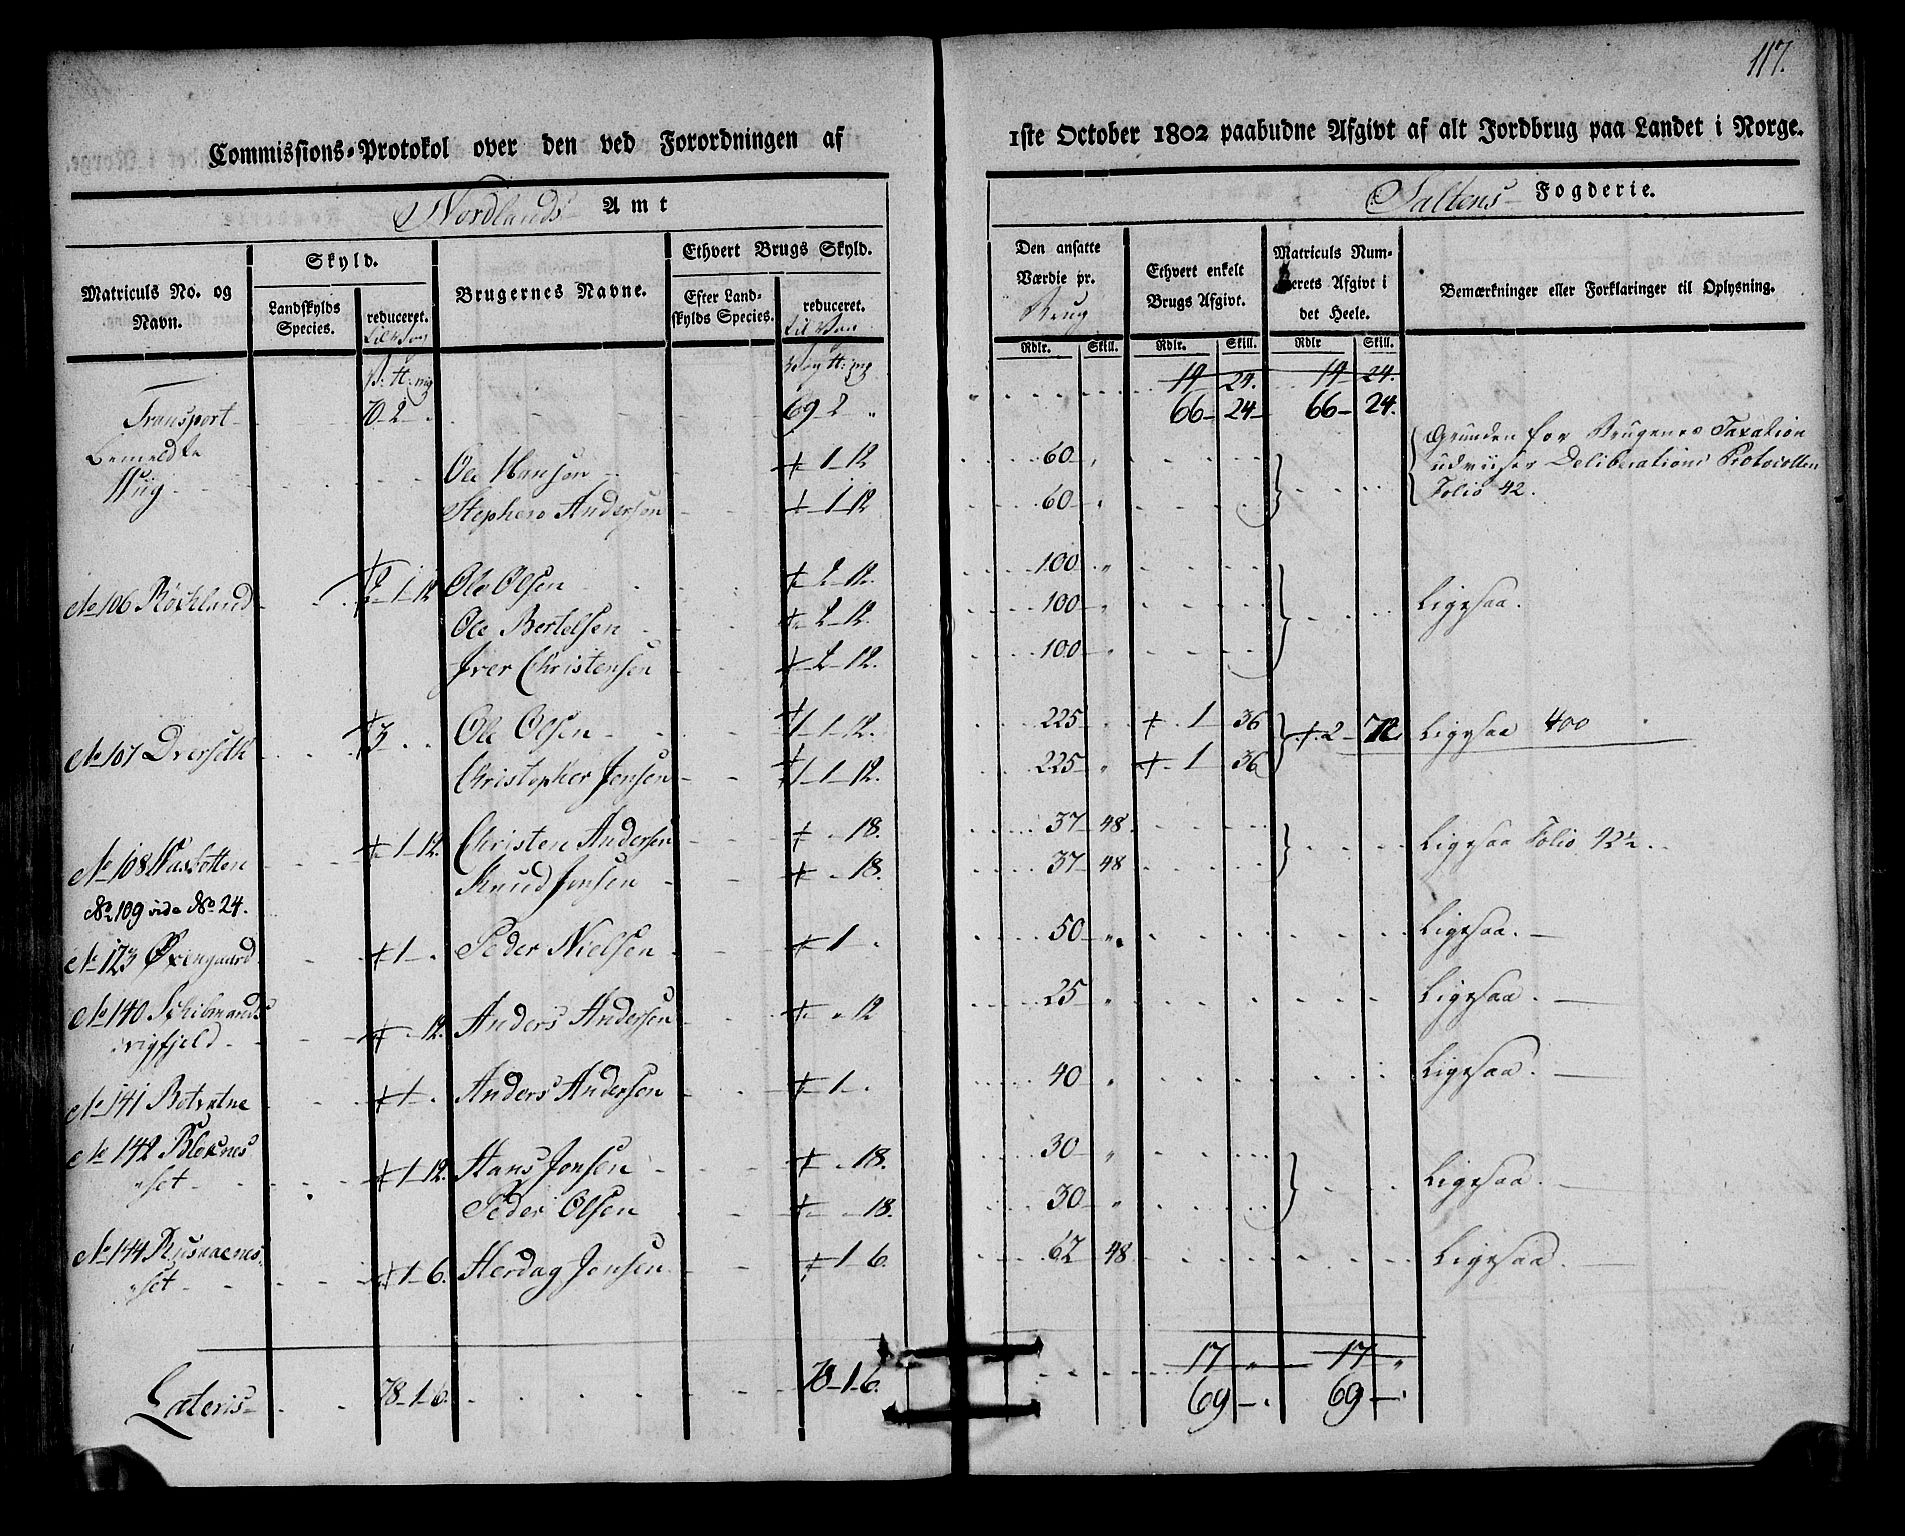 117.
Commissions-Protokol over den ved Forordningen af
1ste October 1802 paabudne Afgivt af alt Jordbrug paa Landet i Norge.
Nordlands Amt
Saltens Fogderie.
Matriculs No. og Navn.
Skyld.
Landskylds Species.
reduceret.
Brugernes Navne.
Ethvert Brugs Skyld.
Efter Landskylds Species.
reduceret.
Den ansatte Værdie pr. Brug
Ethvert enkelt Brugs Afgivt.
Matriculs Numerets Afgivt i det Heele.
Bemærkninger eller Forklaringer til Oplysning.
Rdlr. Skill. Rdlr. Skill. Rdlr Skill.
14 24. 14 24.
Transport 70-2 69-2 " 66- 24- 66- 24.
Bemeldte Ole Hansen 1-12 60 Grunden for Brugenes Taxation
Wiig Stephen Andersen 1-12 60 udviiser Deliberations Protocollen
Folio 42.
No 106 Röchland 2-1-12 Ole Olsen 2-12. 100 " Ligesaa.
Ole Bertelsen 2-12. 100
Iver Christensen 2-12. 100
No 107 3 Ole Olsen 1-1-12. 225 1 36 2 72 Ligesaa 400
Christopher Jensen 1-1-12. 225 " 1 36
No 108 1-12. Christen Andersen 18. 37 48. Ligesaa Folio 42½
Knud Jensen 18. 37 48
No 109 vide No 24.
No 123 Øxengaard 1 Peder Nielsen 1 50 " Ligesaa.
No 140 12. Anders Andersen " 12 25 " Ligesaa.
No 141 Botvatne 1 Anders Andersen 1 40 " Ligesaa.
No 142 1-12. Hans Jensen 18. 30 " Ligesaa.
set Peder Olsen 18. 30 "
No 144 1-6. Herdag Jensen 1-6. 62 48 Ligesaa.
set
17 " 17 "
Lateris 78-1-6. 78-1-6. 69 69